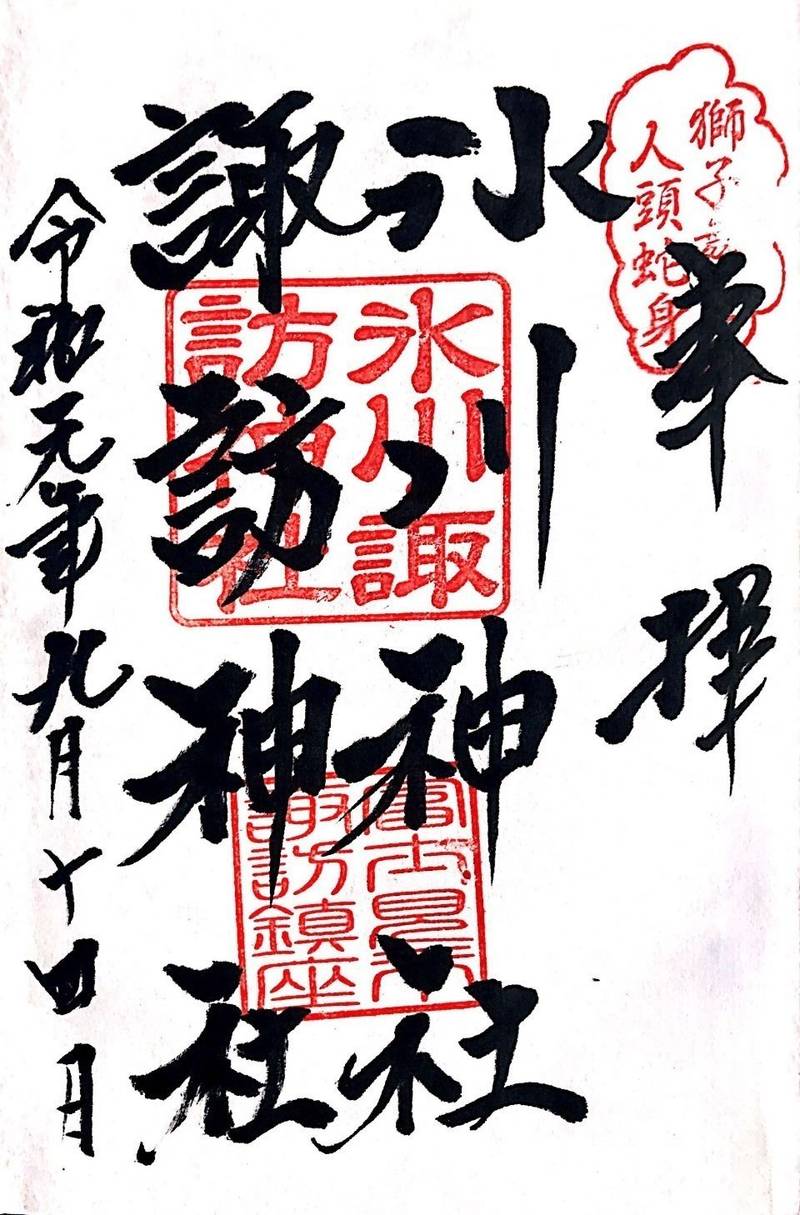 奉拝
獅子
人頭蛇身
氷川神社
諏訪神社
氷川諏
訪神社
富士見市
諏訪鎮座
令和元年九月十四日